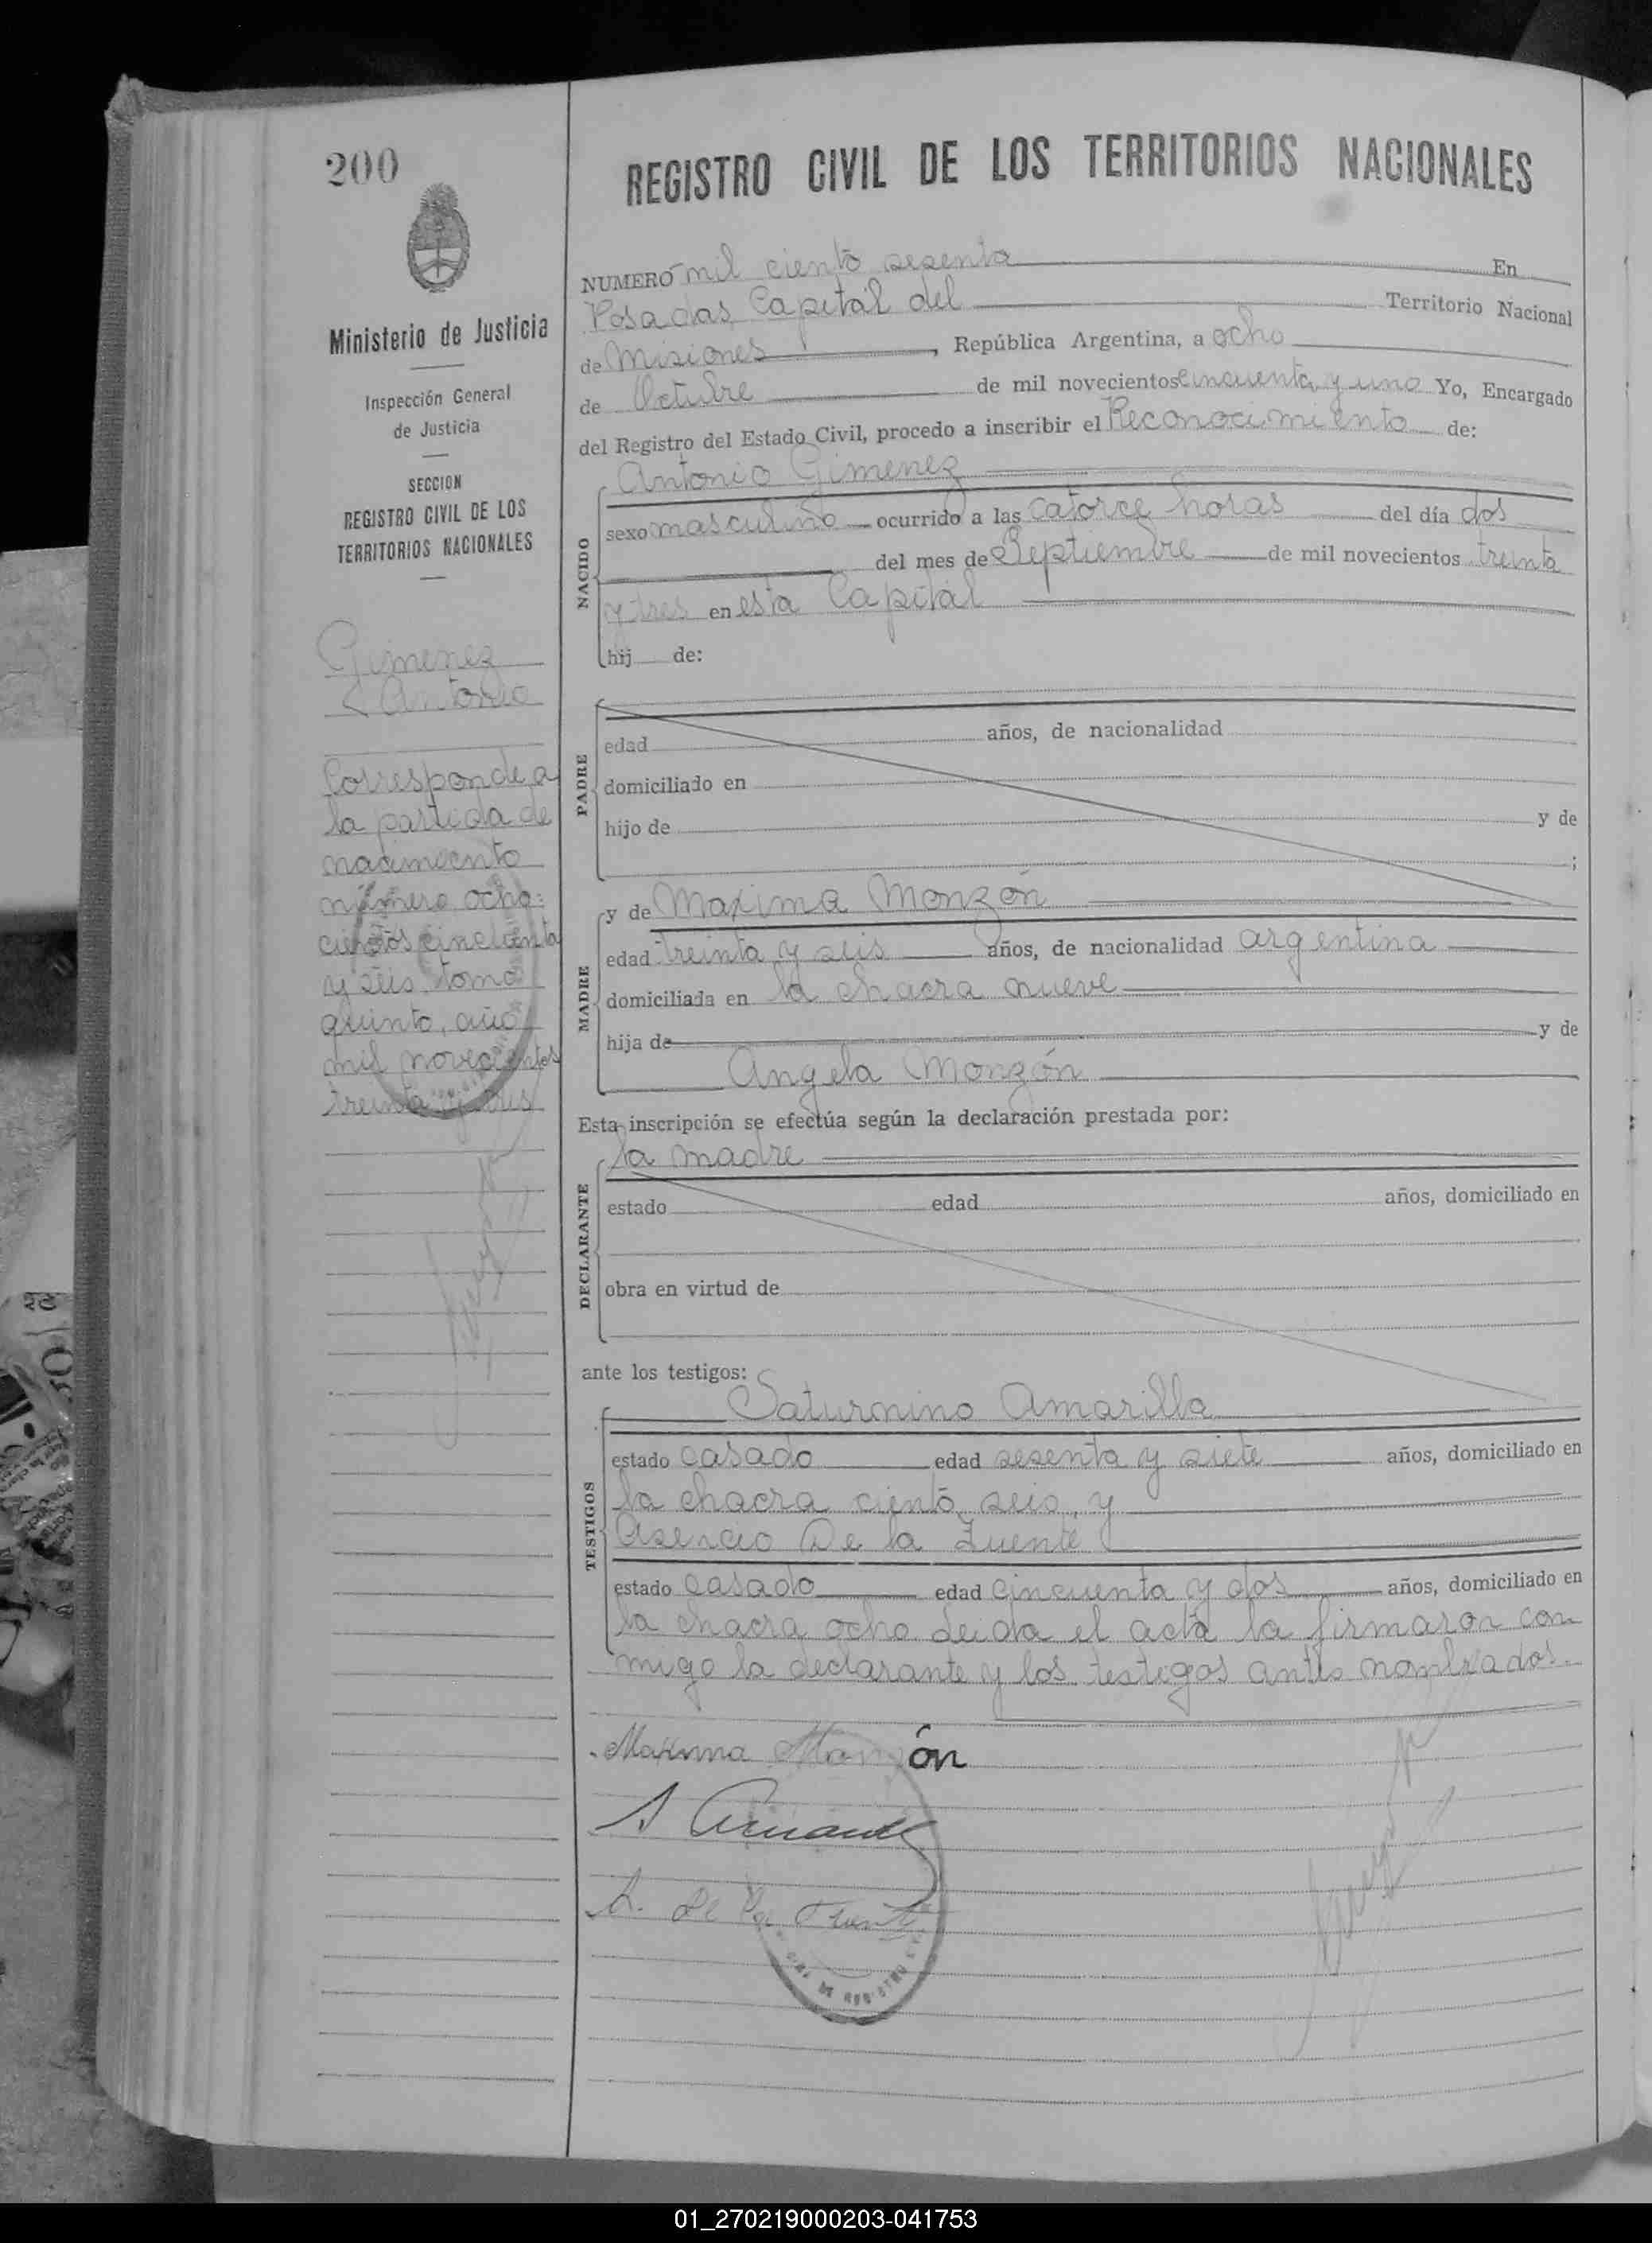 200
REGISTRO CIVIL DE LOS TERRITORIOS NACIONALES
Ministerio de Justicia
Inspección General
de Justicia
SECCION
REGISTRO CIVIL DE LOS
TERRITORIOS NACIONALES
Gimenez
Antonio
Corresponde a
la partida de
nacimiento
número ocho=
cientos cincuenta
y seis tomo
quinto, año
mil novecientos
treinta y tres
NUMERO mil ciento sesenta En
Posadas Capital del Territorio Nacional
de Misiones, República Argentina, a ocho
de Octubre de mil novecientos cincuenta y uno Yo, Encargado
del Registro del Estado Civil, procedo a inscribir el Reconocimiento de:
NACIDO
Antonio Gimenez
sexo masculino ocurrido a las catorce horas del día dos
del mes de Septiembre de mil novecientos treinta
y tres en esta Capital
hij de:
PADRE
edad años, de nacionalidad
domiciliado en
hijo de y de
;
MADRE
y de Maxima Monzón
edad treinta y seis años, de nacionalidad argentina
domiciliada en la chacra nueve
hija de y de
Angela Monzón
Esta inscripción se efectúa según la declaración prestada por:
DECLARANTE
la madre
estado edad años, domiciliado en
obra en virtud de
ante los testigos:
TESTIGOS
Saturnino Amarilla
estado casado edad sesenta y siete años, domiciliado en
la chacra ciento seis, y
Asencio De la Fuente
estado casado edad cincuenta y dos años, domiciliado en
la chacra ocho Leida el acta la firmaron con
migo la declarante y los testigos antes nombrados.
Maxima Monzón
A. De la Fuente
DE REGISTRO
01_270219000203-041753